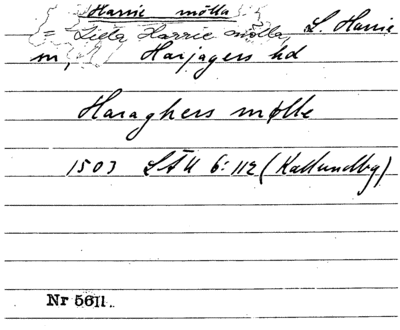 Harrie mölla
= Lilla Harrie mölla, L. Harrie
sn, Harjagers hd
Haraghers mølle
1503 LÄU 6:112 (Kallundbg)
Nr 5611.